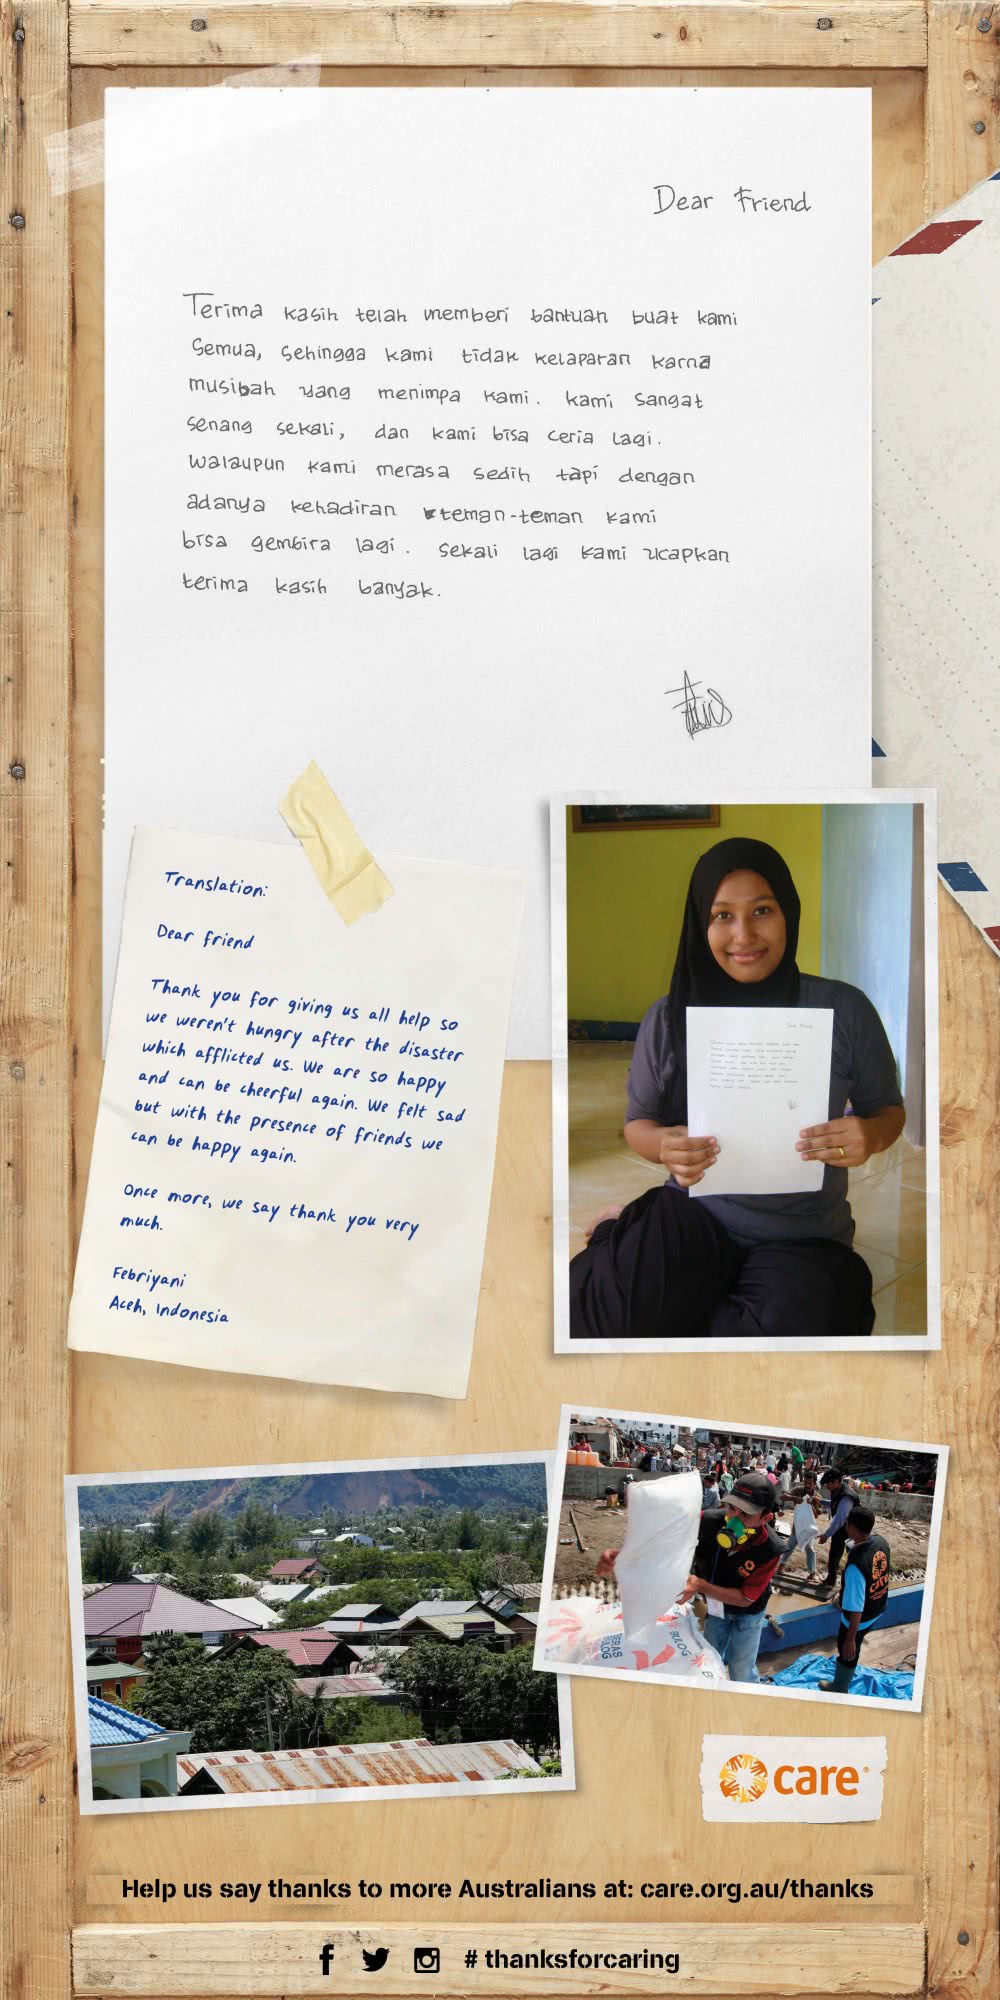 Dear Friend
Terima kasih telah memberi bantuan buat kami
Semua, Sehingga kami tidak kelaparan karna
musibah yang menimpa kami. kami sangat
senang sekali, dan kami bisa ceria lagi.
Walaupun kami merasa sedih tapi dengan
adanya kehadiran teman-teman kami
bisa gembira lagi. Sekali lagi kami ucapkan
terima kasih banyak.
Translation:
Dear friend
Thank you for giving us all help so
we weren't hungry after the disaster
which afflicted us. We are so happy
and can be cheerful again. We felt sad
but with the presence of friends we
can be happy again.
Once more, we say thank you very
much.
Febriyani
Aceh, Indonesia
BERAS
BULOG
BULOG
care
care®
Help us say thanks to more Australians at: care.org.au/thanks
# thanksforcaring